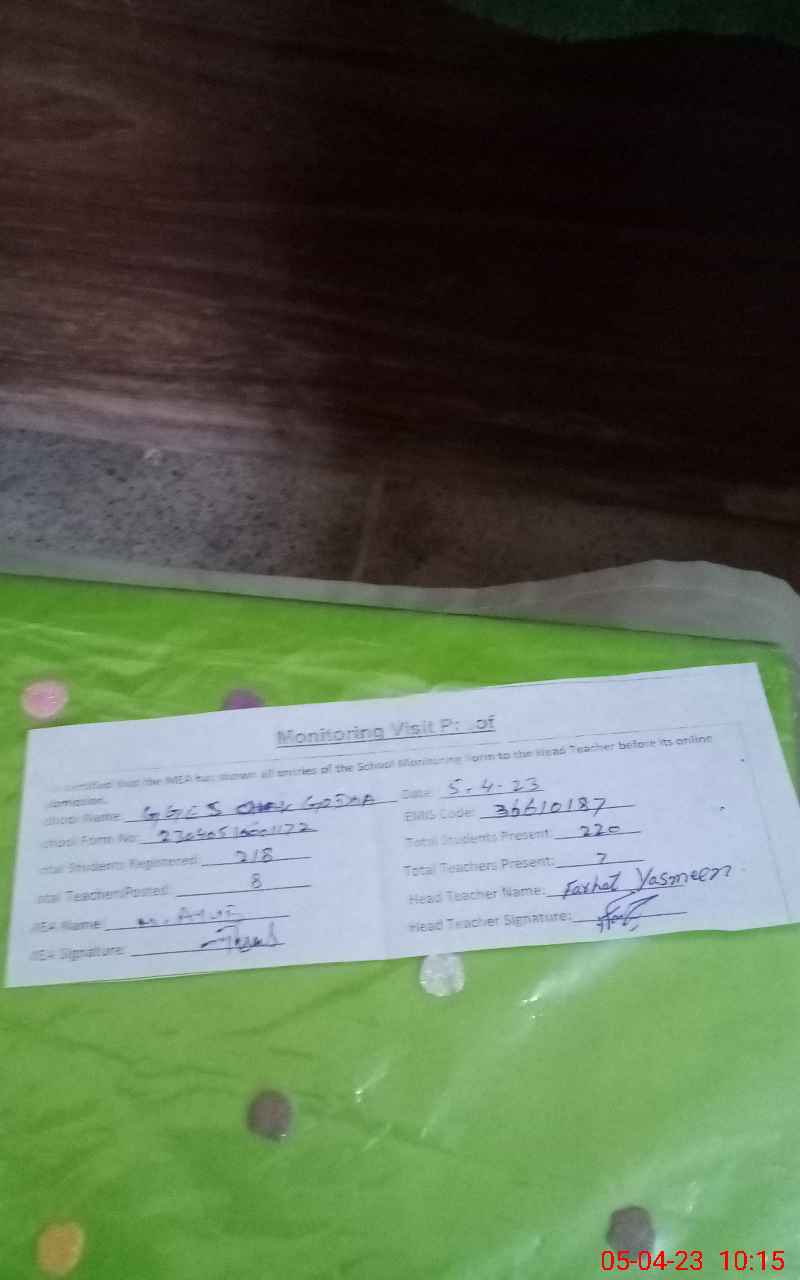 Monitoring Visit P
that the MEA has shown all entries of the School Monitoring Form to the Head Teacher before its online
School Name: GGES
Date: 5-4-23
School Form No:
EMIS Code: 36610187
Total Students Registered: 218
Total Students Present: 220
Total Teachers Posted: 8
Total Teachers Present: 7
MEA Name:
Head Teacher Name: Farhat Yasmeen
MEA Signature:
Head Teacher Signature:
05-04-23 10:15